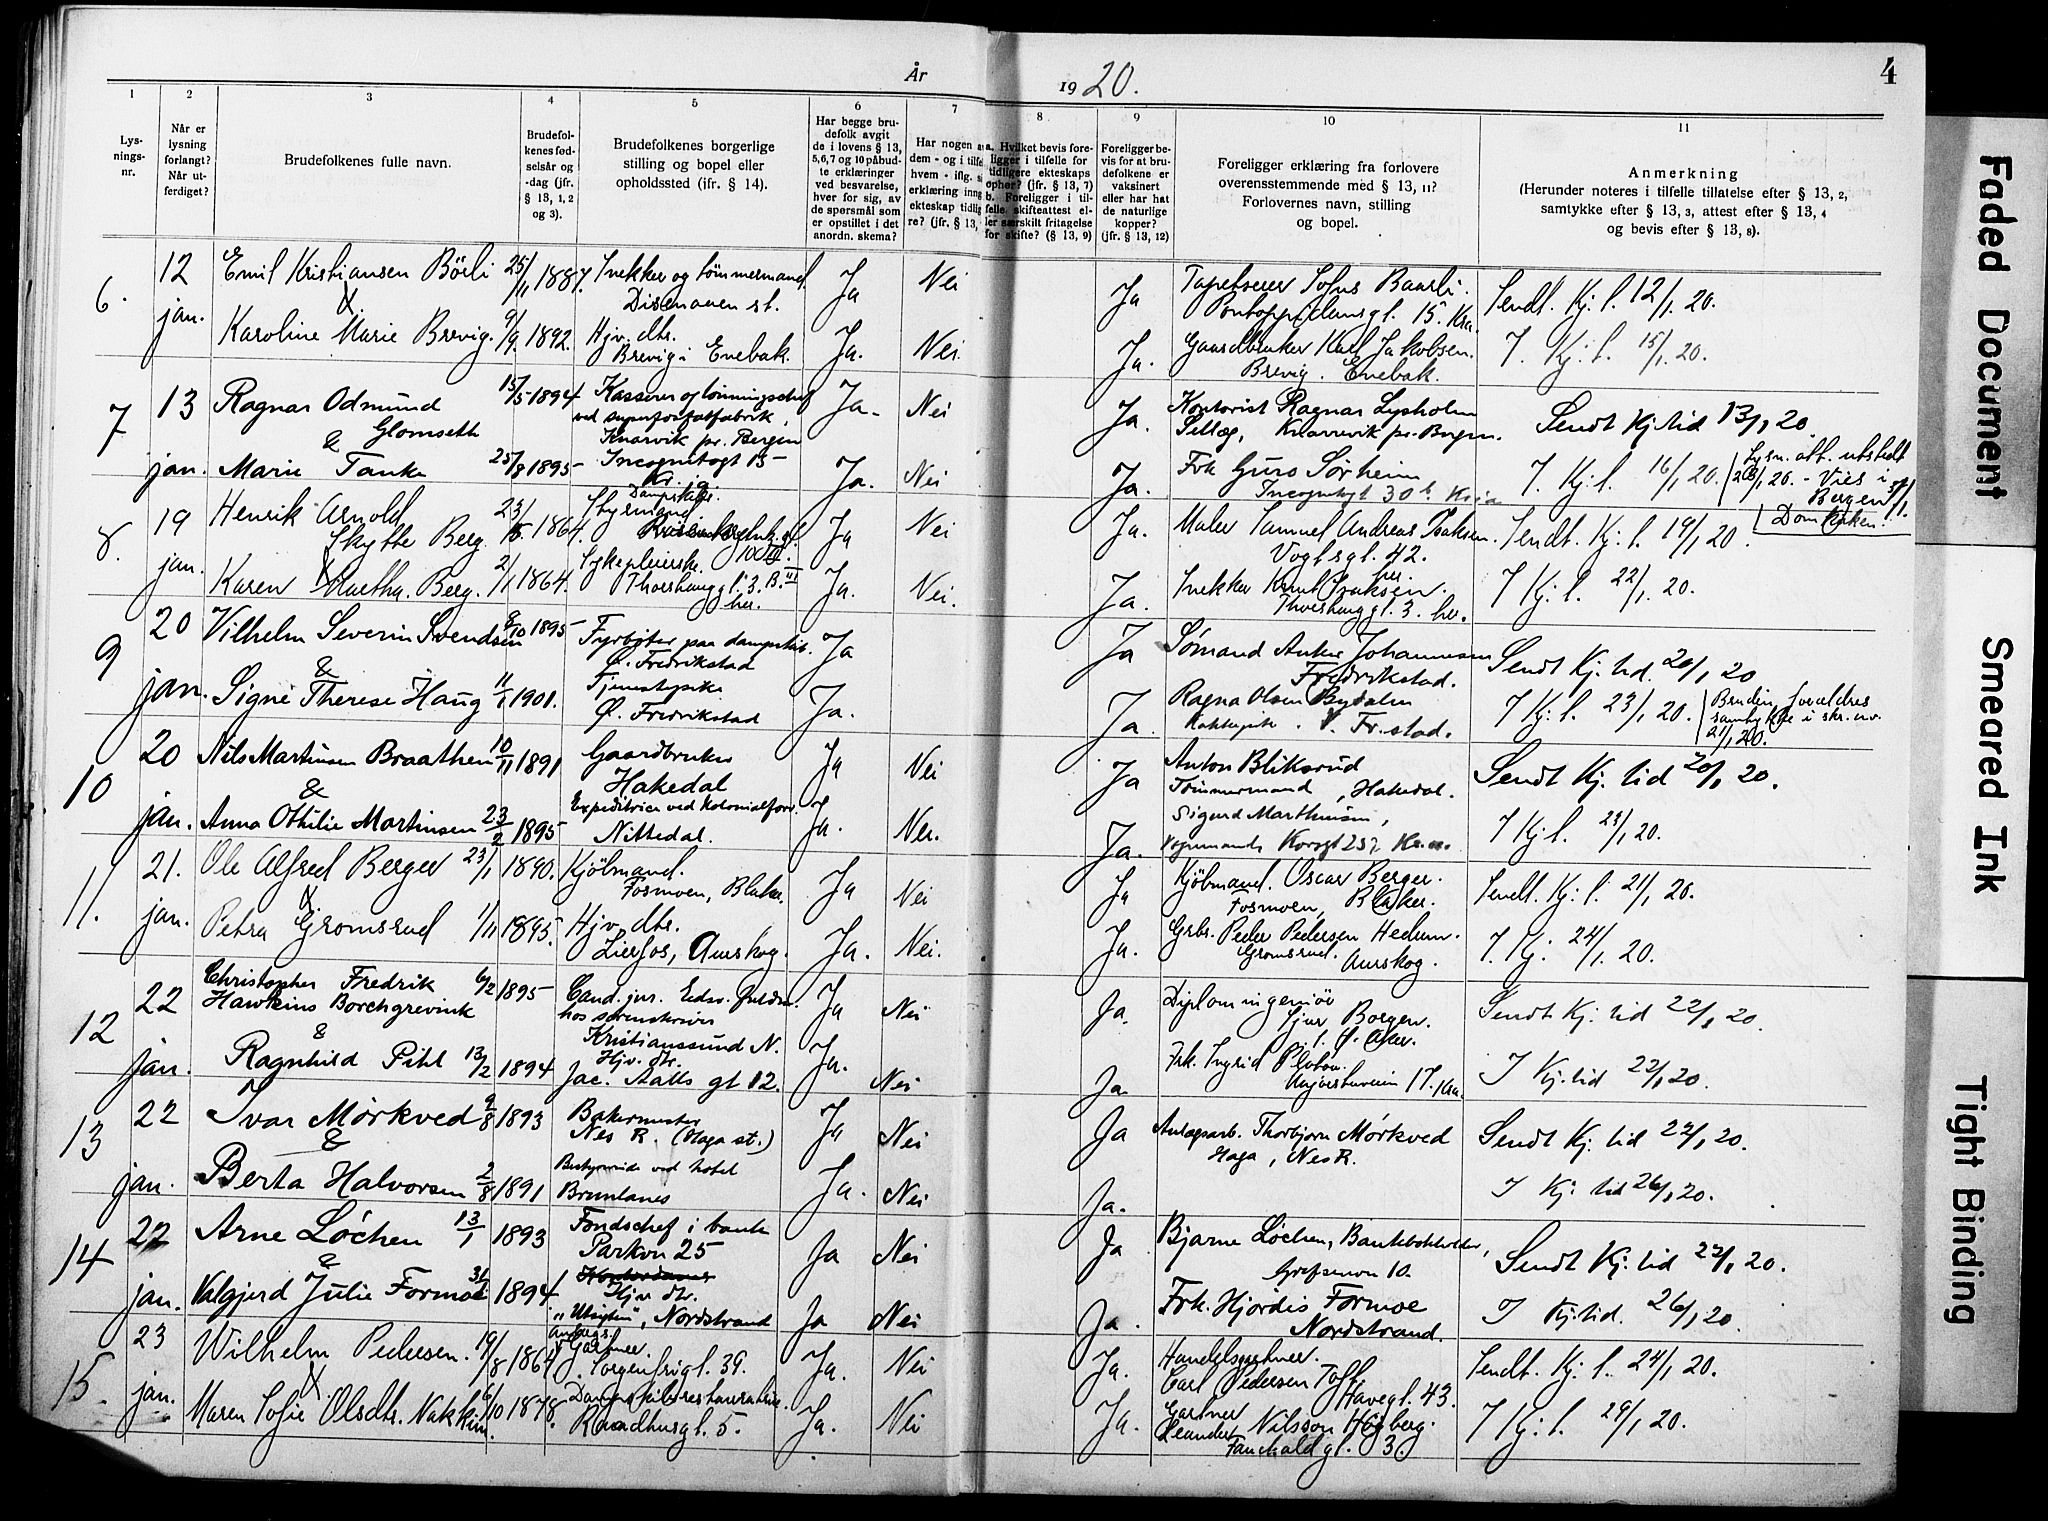 År 1920.
4
1 2 3 4 5 6 7 8 9 10 11
Lysningsnr.
Når er lysning forlangt? Når utferdiget?
Brudefolkenes fulle navn.
Brudefolkenes fødselsår og -dag (jfr. § 13, 1, 2 og 3).
Brudefolkenes borgerlige stilling og bopel eller opholdssted (ifr. § 14).
Har begge brudefolk avgit de i lovens § 13, 5, 6, 7 og 10 påbudte erklæringer ved besvarelse, hver for sig, av de spørsmål som er opstillet i det anordn. skema?
Har nogen a dem - og i tilfe hvem - iflg. si erklæring inng ekteskap tidlig re? (jfr. § 13,
a. Hvilket bevis foreligger i tilfelle for tidligere ekteskaps opher? (jfr. § 13, 7) b. Foreligger i tilfelle skifteattest eller særskilt fritagelse for skifte? (§ 13, 9)
Foreligger bevis for at brudefolkene er vaksinert eller har hat de naturlige kopper? (jfr. § 13, 12)
Foreligger erklæring fra forlovere overensstemmende med § 13, 11? Forlovernes navn, stilling og bopel.
Anmerkning (Herunder noteres i tilfelle tillatelse efter § 13, 2, samtykke efter § 13, 3, attest efter § 13, 4 og bevis efter § 13, 8).
6. 12 jan. Emil Kristiansen Börli 25/11 1887. Snekker og tømmermand Disenaaen st. Ja Nei Ja Tapetserer Sofus Baarli. Pontoppidansgt. 15. Kra. Sendt. Kj. t. 12/1. 20.
& Karoline Marie Brevig. 9/9. 1892. Hjv. dtr. Brevig i Enebak. Ja. Nei. Ja. Gaardbruker Karl Jakobsen. Brevig. Enebak. I. Kj. t. 15/1. 20.
7 13 jan. Ragnar Odmund Glomseth 15/5 1894 Kasserer og lønningschef ved superfosfatfabrik, Knarvik pr. Bergen Ja. Nei Ja. Kontorist Ragnar Lysholm Selleg, Knarrevik pr. Bergen. Sendt Kj. tid 13/1 20.
& Marie Tanke 25/8 1895 Incognitogt 15 Kr. a Ja. Nei Ja. Frk Guro Sørheim Incognitogt 30 b Kr.ia I. Kj. t. 16/1 20. Lysn. att. utstedt 28/1 20. - Vies i Bergen 31/1. Domkirken.
8. 19 jan. Henrik Arnold Skytte Berg. 23/ 1864. Dampskibs. Styrmand. 100 Ja Nei Ja. Maler Samuel Andreas Isaksen. Vogtsgt. 42. her. Sendt. Kj. t. 19/1 20.
& Karen Martha. Berg. 2/1 1864. Sykepleierske. Thorshauggt. 3. B. her. Ja. Nei. Ja. Snekker Knut Isaksen. Thorshauggt. 3. her. I Kj. t. 22/1. 20.
9 20 jan. Vilhelm Severin Svendsen 8/10 1895 Fyrbøter paa dampskib. Ø. Fredrikstad Ja Ja Sømand Anker Johannesen Fredrikstad. Sendt Kj. tid. 20/1 20
& Signe Therese Haug 11/1 1901. Tjenestepike Ø. Fredrikstad Ja. Ja. Ragna Olsen Bydalen V. Fr.stad. I Kj. t. 23/1 20. Bruden forældres samtykke i skr. av. 21/1 20.
10 20 jan. Nils Martinsen Braathen 10/11 1891 Gaardbruker Hakedal Ja Nei Ja Anton Bliksrud Tømmermand, Hakedal. Sendt Kj. tid 20/1 20.
& Anna Othilie Martinsen 23/2 1895 Expeditrice ved kolonialforr. Nittedal. Ja. Nei. Ja. Sigurd Marthinsen, Vognmand Korsgt 25 I Kj t. 23/1 20.
11. 21. jan. Ole Alfred Berger 23/1 1890. Kjöbmand. Fosmoen, Blaker. Ja Nei Ja Kjöbmand. Oscar Berger. Fosmoen, Blaker. Sendt. Kj. t. 21/1 20.
& Petra Gromsrud 1/11 1895. Hjv. dtr. Lierfos, Aurskog. Ja. Nei. Ja. Grbr. Peder Pedersen Hedum. Gromsrud. Aurskog. I. Kj. 24/1. 20.
12 22 jan. Christopher Fredrik Hawkins Borchgrevink 6/2 1895 Cand. jur. hos sorenskriver Kristianssund N. Ja Nei Ja. Diplomingeniør Sjur Borgen. Ø. Aker. Sendt Kj. tid 22/1 20.
& Ragnhild Pihl 13/2 1894 Hjv. dtr. Jac. Aalls gt 12. Ja. Nei Ja Frk. Ingrid 17. Kra. I Kj. tid 22/1 20.
13 22 jan. Ivar Mörkved 9/8 1893 Bakermester Nes R. (Haga st.) Ja Nei Ja Anlægsarb. Thorbjørn Mörkved Haga, Nes R. Sendt Kj. tid 22/1 20.
& Berta Halvorsen 2/8 1891 Bestyrerinde ved hotel Brunlanes Ja. Nei Ja. I Kj. tid 26/1 20.
14 22 jan. Arne Löchen 13/1 1893 Fondschef i bank Parkvn 25 Ja Nei Ja Bjarne Löchen, Bankbokholder, Grefsenvn 10. Sendt Kj. tid 22/1 20.
& Valgjerd Julie Formoe 31/ 1894 Kontordame Hjv. dtr. "Utsigten", Nordstrand Ja Nei Ja. Frk. Hjördis Formoe Nordstrand. I Kj. tid. 26/1 20.
15. 23 jan. Wilhelm Pedersen. 19/8 1864 Anlægs Gartner. Sorgenfrigt. 39. Ja. Nei Ja. Handelsgartner. Carl Pedersen Toft Havegt. 43. Sendt. Kj. t. 24/1 20.
& Maren Sofie Olsdtr. Nakkim. 6/10 1878. Dampskibsrestauratrice. Raadhusgt. 5. Ja. Nei Ja. Gartner Leander Nilsson Högberg. Fauchaldgt. 3. I Kj. t. 29/1 20.
Faded Document
Smeared Ink
Tight Binding